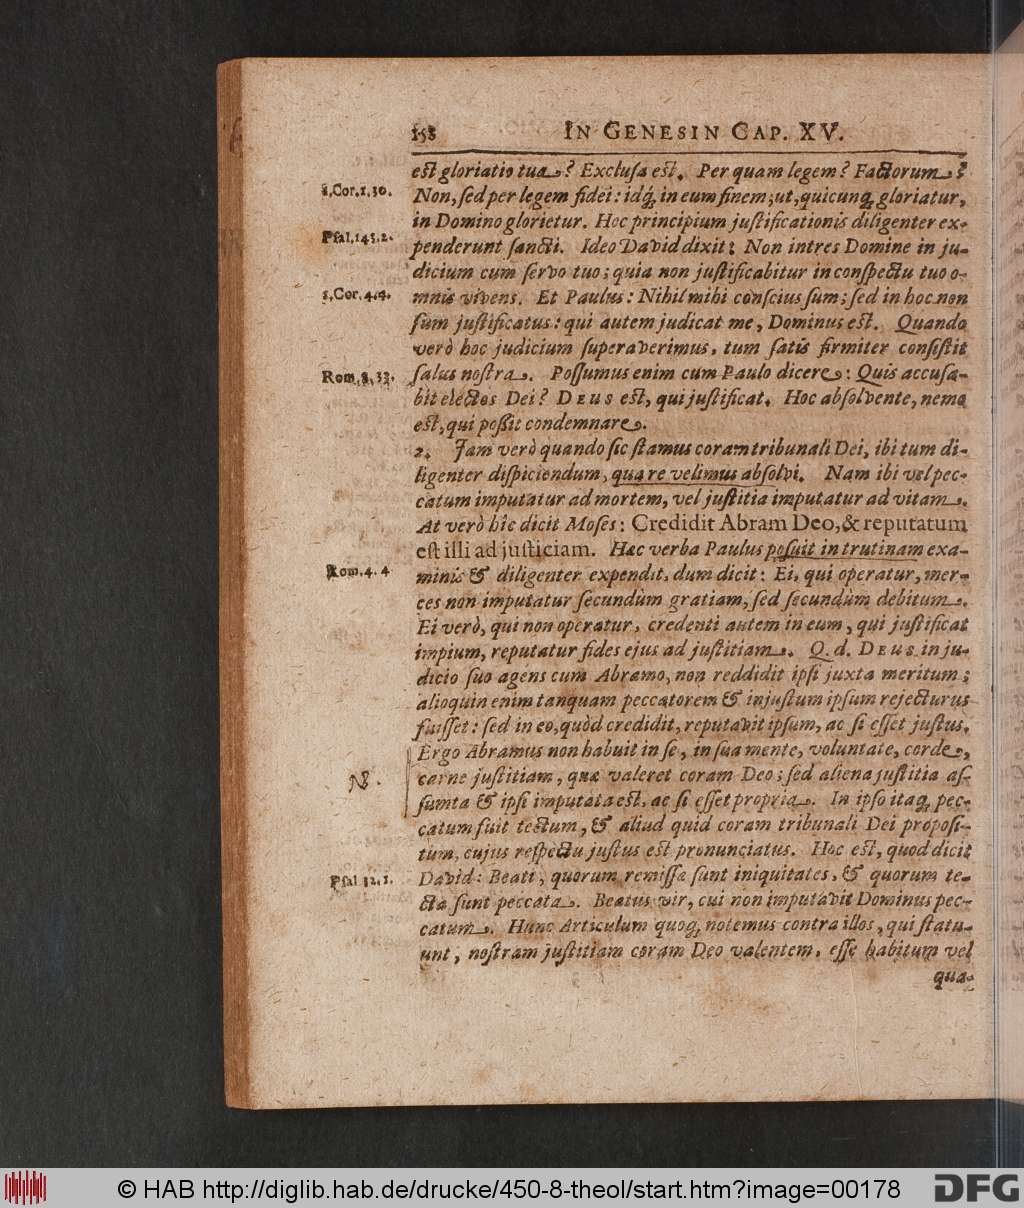 158 IN GENESIN CAP. XV.
est gloriatio tua? Exclusa est. Per quam legem? Factorum?
1. Cor. 1, 30. Non, sed per legem fidei: idq́; in eum finem; ut, quicunq; gloriatur,
in Domino glorietur. Hoc principium justificationis diligenter ex-
Psal. 143. 2. penderunt sancti. Ideo David dixit: Non intres Domine in ju-
dicium cum servo tuo; quia non justificabitur in conspectu tuo o-
1. Cor. 4. 4. mnis vivens. Et Paulus: Nihil mihi conscius sum; sed in hoc non
sum justificatus: qui autem judicat me, Dominus est. Quando
verò hoc judicium superaverimus, tum satis firmiter consistit
Rom. 8. 33. salus nostra. Possumus enim cum Paulo dicere: Quis accusa-
bit electos Dei? DEUS est, qui justificat. Hoc absolvente, nemo
est, qui possit condemnare.
2. Jam verò quando sic stamus coram tribunali Dei, ibi tum di-
ligenter dispiciendum, qua re velimus absolvi. Nam ibi vel pec-
catum imputatur ad mortem, vel justitia imputatur ad vitam.
At verò hîc dicit Moses: Credidit Abram Deo, & reputatum
est illi ad justiciam. Hæc verba Paulus posuit in trutinam exa-
Rom. 4. 4 minis & diligenter expendit, dum dicit: Ei, qui operatur, mer-
ces non imputatur secundùm gratiam, sed secundùm debitum.
Ei verò, qui non operatur, credenti autem in eum, qui justificat
impium, reputatur fides ejus ad justitiam. Q. d. DEUS in ju-
dicio suo agens cum Abramo, non reddidit ipsi juxta meritum;
alioquin enim tanquam peccatorem & injustum ipsum rejecturus
fuisset: sed in eo, quòd credidit, reputavit ipsum, ac si esset justus.
Ergo Abramus non habuit in se, in sua mente, voluntate, corde,
NB. carne justitiam, quæ valeret coram Deo; sed aliena justitia as-
sumta & ipsi imputata est, ac si esset propria. In ipso itaq; pec-
catum fuit tectum, & aliud quid coram tribunali Dei proposi-
tum, cujus respectu justus est pronunciatus. Hoc est, quod dicit
Psal 32. 1. David: Beati, quorum remissæ sunt iniquitates, & quorum te-
cta sunt peccata. Beatus vir, cui non imputavit Dominus pec-
catum. Hunc Articulum quoq; notemus contra illos, qui statu-
unt, nostram justitiam coram Deo valentem, esse habitum vel
qua-
© HAB http://diglib.hab.de/drucke/450-8-theol/start.htm?image=00178 DFG